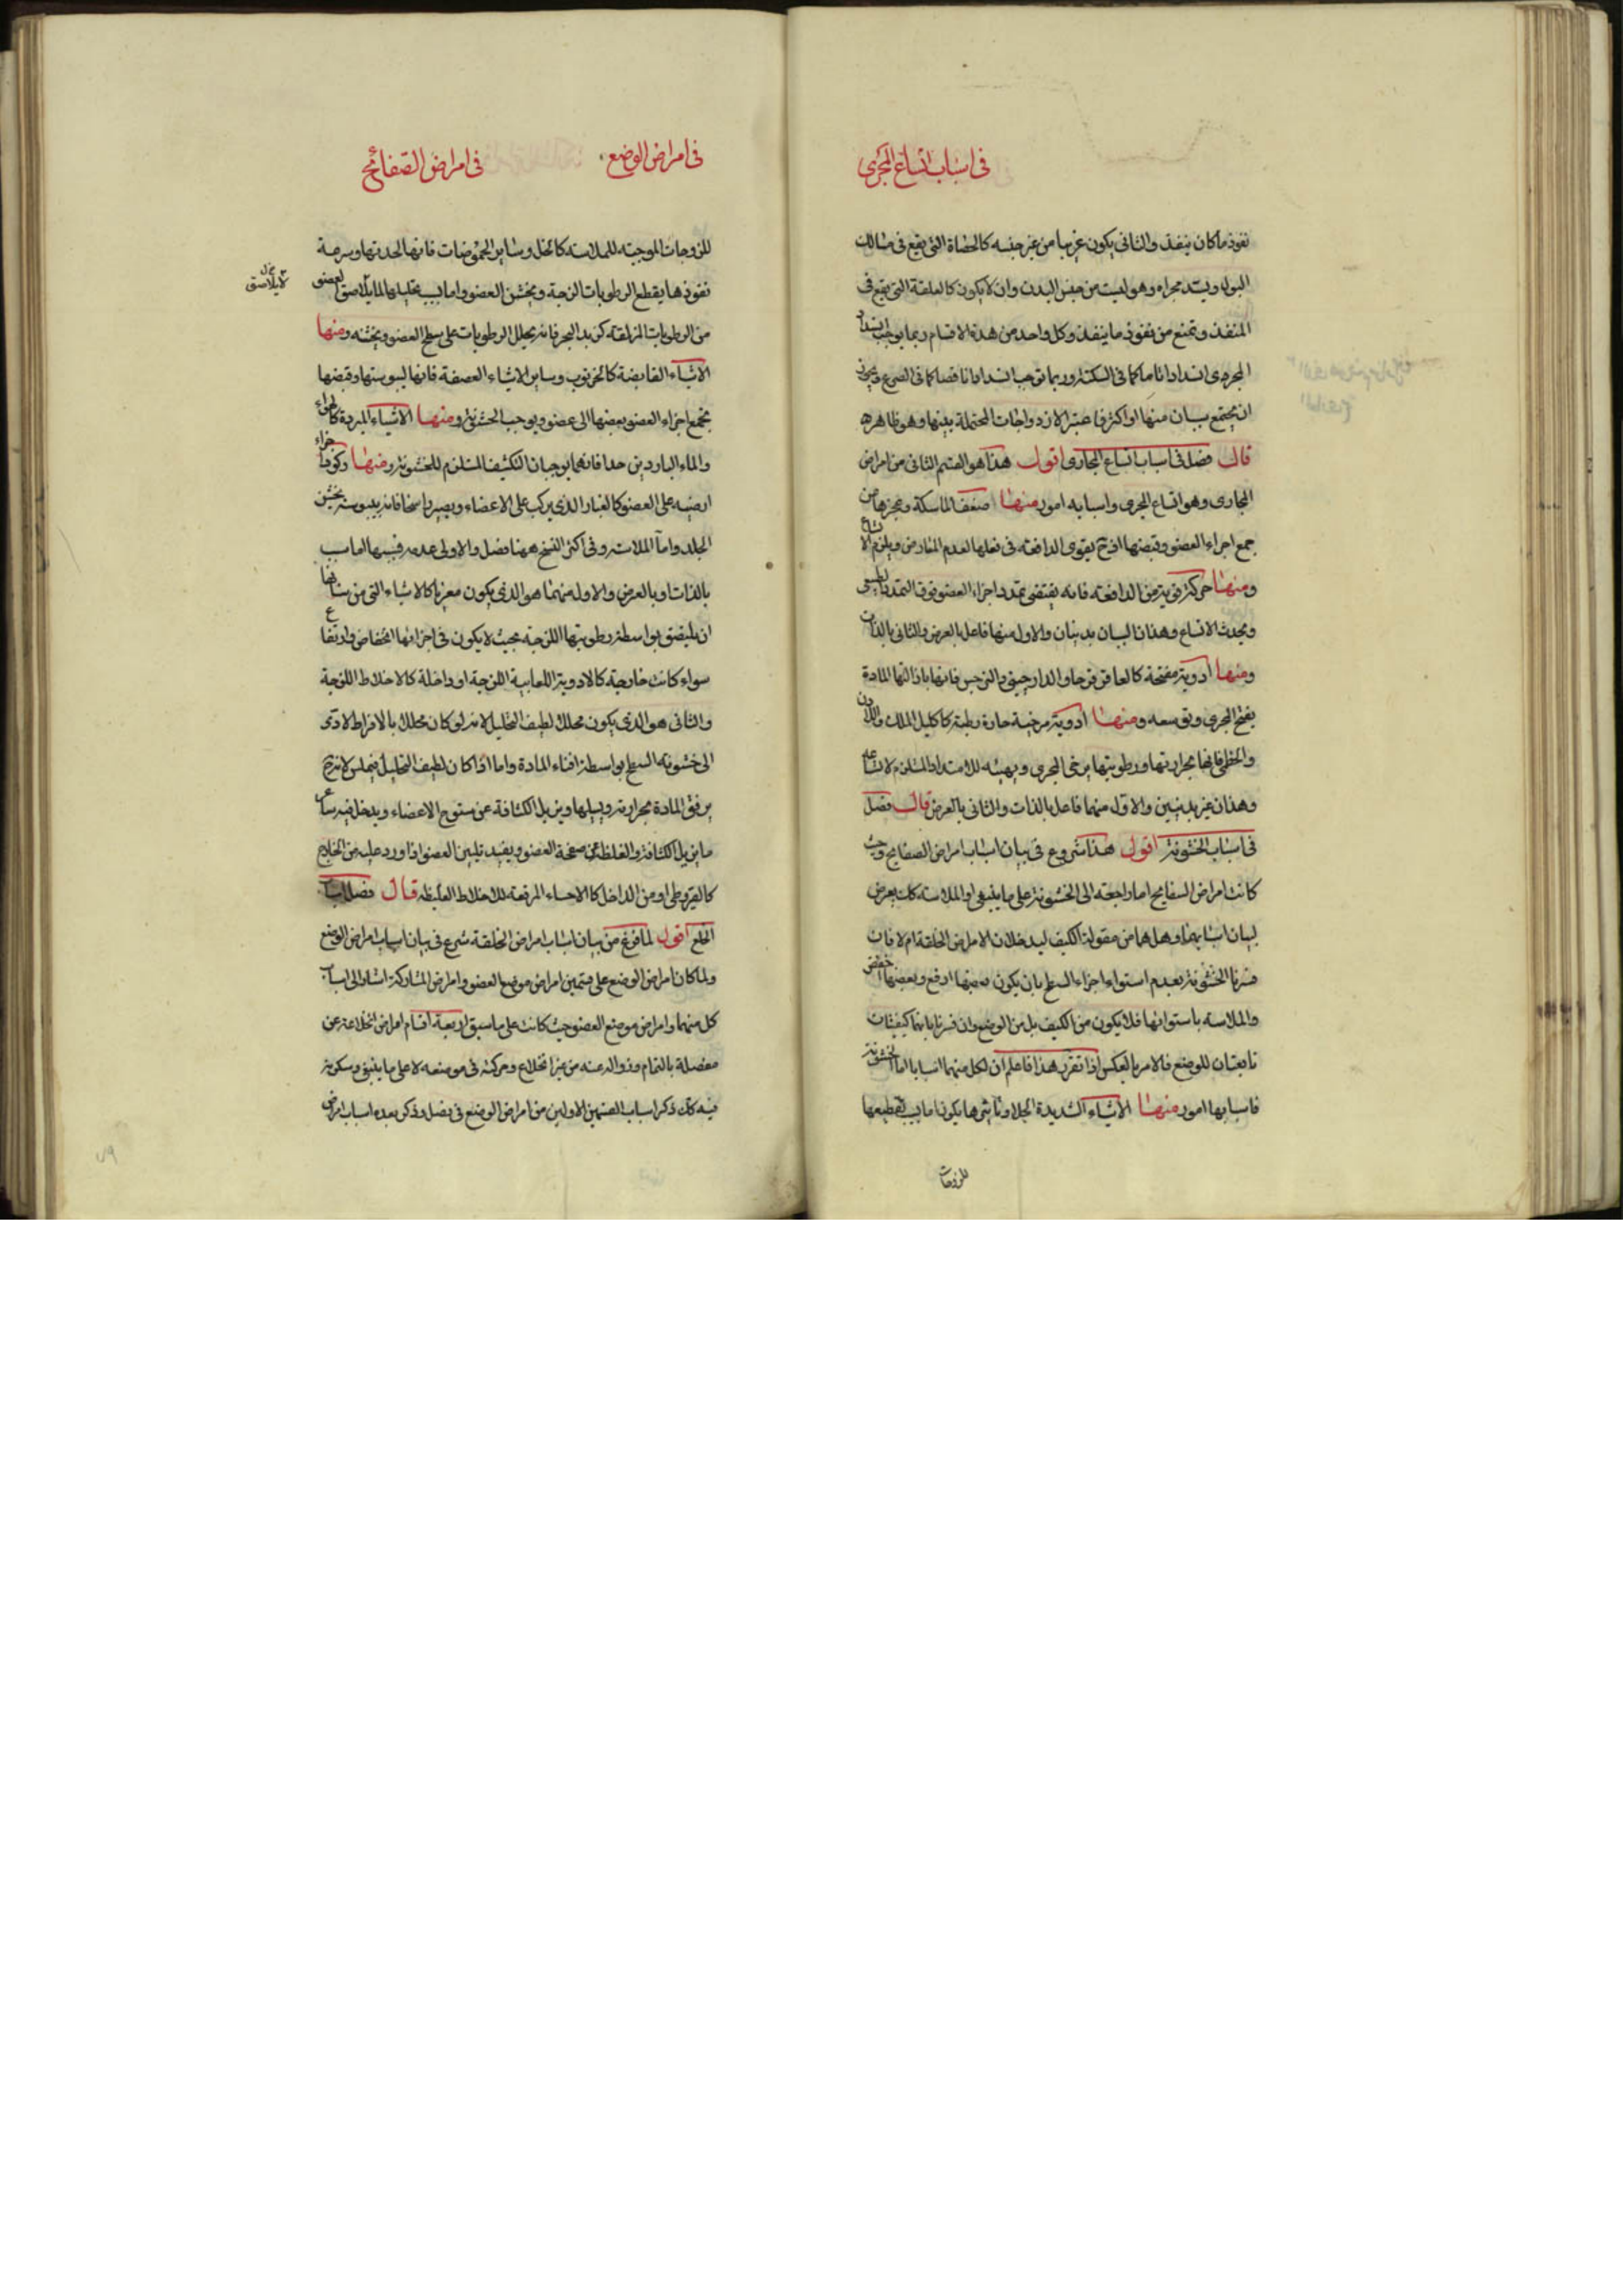 فى اسباب اتساع المجرى
نفوذ ما كان ينفذ والثانى يكون غريبا من غير جنسه كالحصاة التى تقع فى مسالك
البول ويسد مجراه وهو ليست من جنس البدن وان لا يكون كالعلقة التى يقع فى
المنفذ وتمنع من نفوذ ما ينفذ وكل واحد من هذه الاقسام ربما يوجب انسداد
المجرى انسدادا تاما كما فى السكتة وربما توجب انسدادا ناقصا كما فى الصرع ويجوز
ان يجتمع سببان منها او اكثر فاعتبر الازدواجات المحتملة بينها وهو ظاهر
قال فصل فى اسباب اتساع المجارى اقول هذا هو القسم الثانى من امراض
المجارى وهو اتساع المجرى واسبابه امور منها ضعف الماسكة وعجزها من
جمع اجزاء العضو وقبضها اذ ح يقوى الدافعة فى فعلها لعدم المعارض ويلزم الاتساع
ومنها حركة قوية من الدافعة فانه يقتضى تمدد اجزاء العضو فوق التمدد الطبيعى
ويحدث الاتساع وهذان السببان بدنيان والاول منها فاعل بالعرض والثانى بالذات
ومنها ادوية مفتحة كالعاقرقرحا والدارچينى والنرجس فانها باذالتها المادة
يفتح المجرى وتوسعه ومنها ادوية مرخية حارة رطبة كاكليل الملك واللادن
والخطمى فانها بحرارتها ورطوبتها يرخى المجرى ويهيئه للامتداد المستلزم لاتساعه
وهذان غير بدنيين والاول منهما فاعل بالذات والثانى بالعرض قال فصل
فى اسباب الخشونة اقول هذا شروع فى بيان اسباب امراض الصفايح وحيث
كانت امراض السفايح اما راجعه الى الخشونة على ما ينبغى او الملاسه كك تعرض
لبيان اسبابهما وهل هما من مقولة الكيف ليدخلان الامراض الخلقة ام لا فان
فسرنا الخشونة بعدم استواء اجزاء السطح بان يكون بعضها ارفع وبعضها اخفض
والملاسه باستوائها فلا يكون من الكيف بل من الوضع وان فسرنا بانهما كيفيتان
تابعتان للوضع فالامر بالعكس اذا تقرر هذا فاعلم ان لكل منهما اسبابا اما الخشونة
فاسبابها امور منها الاشياء الشديدة الجلا وتاثيرها يكون اما بسبب تقطيعها
للزوجات
فى امراض الوضع
فى امراض الصفائح
للزوجات الموجبة للملاسه كالخل وساير الحموضات فانها لحدتها وسرعة
نفوذها يقطع الرطوبات اللزجة ويخشن العضو واما بسبب تحليلها لما يلاصق العضو
لا يلاصق
من الرطوبات المزلقة كزبد البحر فانه يحلل الرطوبات على سطح العضو ويخشنه ومنها
الاشياء القابضة كالخرنوب وساير الاشياء العصفة فانها ليبوستها وقبضها
يجمع اجزاء العضو بعضها الى عضو ويوجب الخشونة ومنها الاشياء المبردة كالهواء
والماء الباردين جدا فانهما يوجبان التكثيف المستلزم للخشونة ومنها ركود اجزاء
ارضيه على العضو كالغبار الذى يركب على الاعضاء ويصير راسخا فانه بيبوسته يخشن
الجلد واما الملاسة وفى اكثر النسخ ههنا فصل والاولى عدمه فسببها اما سبب
بالذات او بالعرض والاول منهما هو الذى يكون مغريا كالاشياء التى من شانها
ان يلتصق بواسطة رطوبتها اللزجة بحيث لا يكون فى اجزائها انخفاض وارتفاع
سواء كانت خارجة كالادوية اللعابية اللزجة او داخلة كالاخلاط اللزجة
والثانى هو الذى يكون محللا لطيف التحليل لانه لو كان محللا بالافراط لادى
الى خشونه السطح بواسطة افناء المادة واما اذا كان لطيف التحليل فيملس لانه ح
يرقق المادة بحرارته ويسيلها ويزيل الكثافة عن سطوح الاعضاء ويدخل فيه ساير
ما يزيل الكثافة والغلظ عن صفحة العضو ويفيد تليين العضو اذا ورد عليه من الخارج
كالقيروطى او من الداخل كالاحساء المرققة للاخلاط الغليظه قال فصل اسباب
الخلع اقول لما فرغ من بيان اسباب امراض الخلقة شرع فى بيان اسباب امراض الوضع
ولما كان امراض الوضع على قسمين امراض موضع العضو وامراض المشاركة اشار الى اسباب
كل منهما وامراض موضع العضو حيث كانت على ما سبق اربعة اقسام امراض انخلاعه عن
مفصلة بالتمام وزواله عنه من غير انخلاع وحركته فى موضعه لا على ما ينبغى وسكونه
فيه كك ذكر اسباب القسمين الاولين من امراض الوضع فى فصل وذكر بعده اسباب امراض